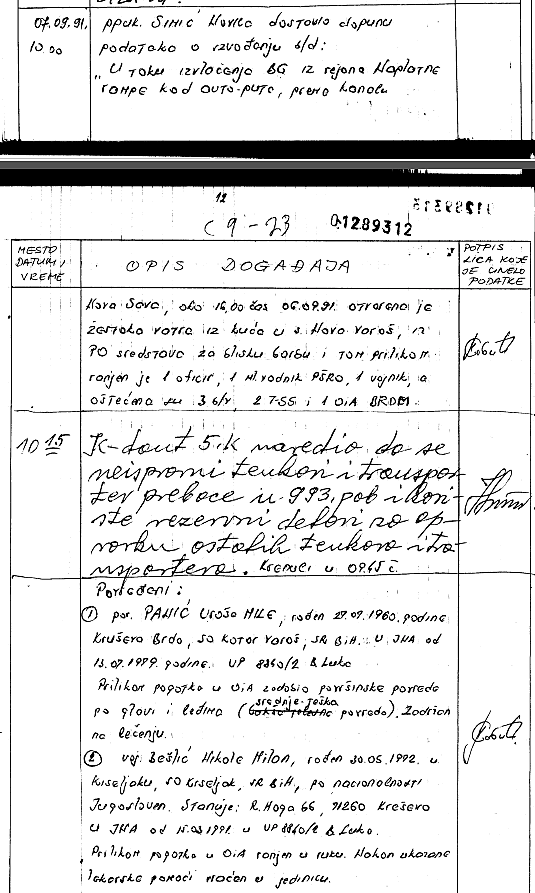 07.09.91. ppuk. SIMIĆ Novica dostavio dopunu
10,00 podataka o izvođenju b/d:
„U toku izvlačenja BG iz rejona Naplatne
rampe kod auto-puta, prema kanalu
12
C 9-23 01289312
MESTO DATUM I VREME
OPIS DOGAĐAJA
POTPIS LICA KOJE JE UNELO PODATKE
Nova Sava, oko 16,00 čas 06.09.91. otvorena je
žestoka vatra iz kuća u s. Nova Varoš, iz
PO sredstava za blisku borbu i tom prilikom
ranjen je 1 oficir, 1 ml. vodnik PŠRO, 1 vojnik, a
oštećena su 3 b/v, 2 T-55 i 1 OiA BRDM.
10 15 K-dant 5.K naredio da se
neispravni tenkovi i transpor-
ter prebace u 993. pob i kori-
ste rezervni delovi za op-
ravku ostalih tenkova i tra-
nsportera. Krenuli u 09.45 č.
Povređeni:
① por. PANIĆ Uroša MILE, rođen 27.09.1960. godine
Kruševo Brdo, SO Kotor Varoš, SR BiH. U JNA od
15.07.1979. godine. UP 8860/2 B. Luka
Prilikom pogotka u OiA zadobio površinske povrede
srednje teška
po glavi i leđima ( povreda). Zadržan
na lečenju.
② voj. Bešlić Nikole Milan, rođen 30.05.1972. u
Kiseljaku, SO Kiseljak, SR BiH, po nacionalnosti
Jugosloven. Stanuje: R. Noga 66, 71260 Kreševo
U JNA od 15.03.1991. u UP 8860/2 B. Luka.
Prilikom pogotka u OiA ranjen u ruku. Nakon ukazane
lekarske pomoći vraćen u jedinicu.